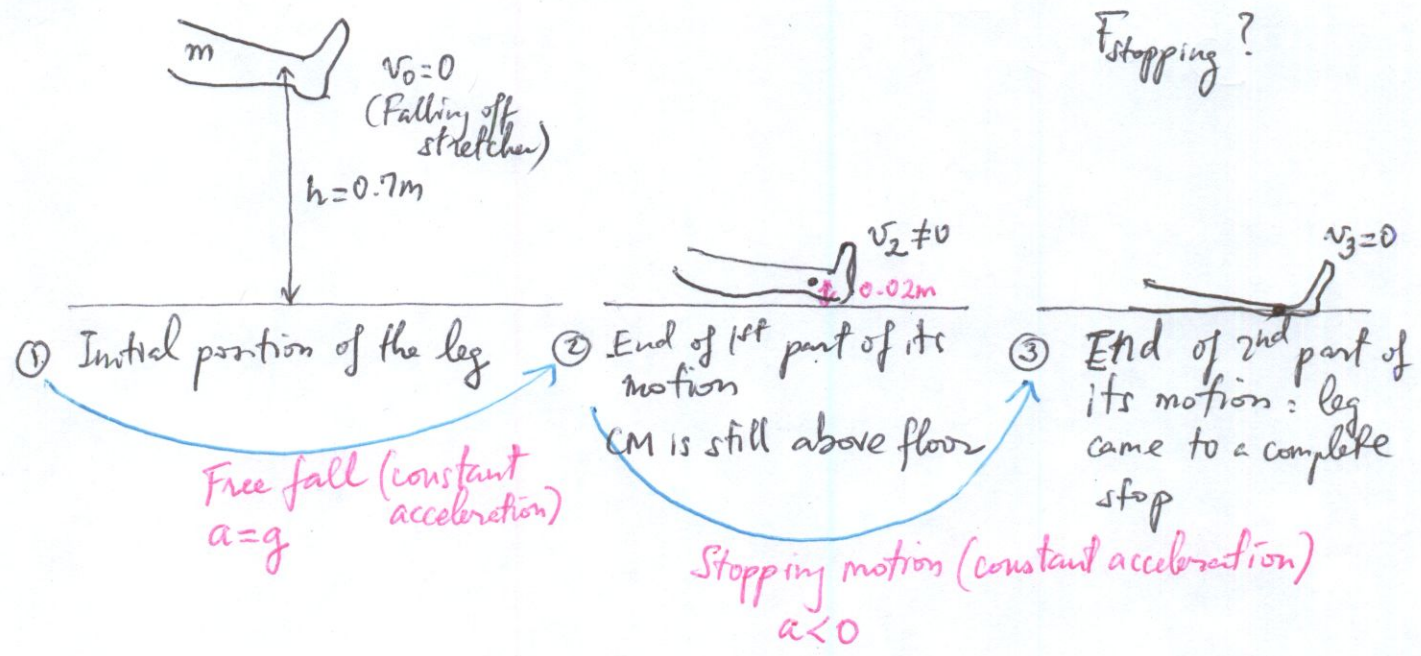 m
v₀=0
(Falling off
stretcher)
h=0.7m
F stopping ?
v₂≠0
0.02m
v₃=0
① Initial position of the leg
② End of 1st part of its
motion
CM is still above floor
③ End of 2nd part of
its motion: leg
came to a complete
stop
Free fall (constant
acceleration)
a=g
Stopping motion (constant acceleration)
a<0